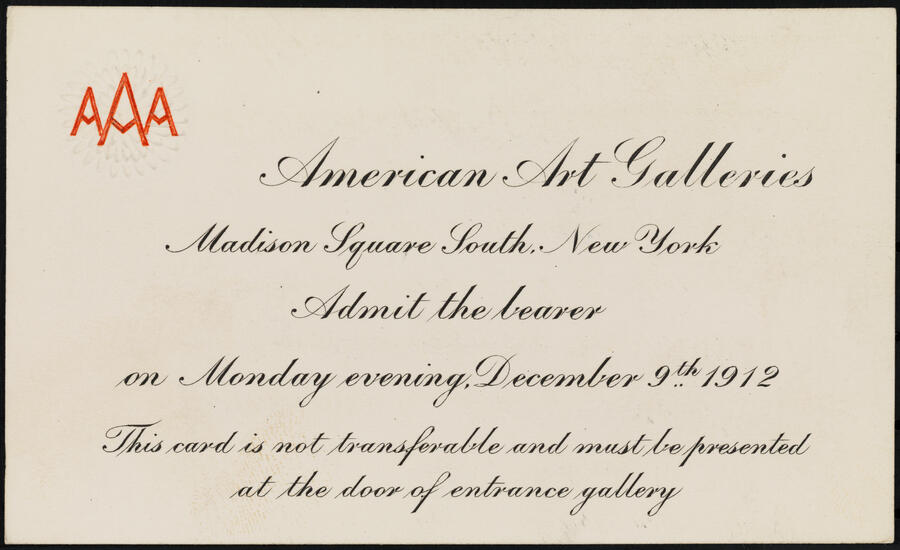 AAA
American Art Galleries
Madison Square South, New York
Admit the bearer
on Monday evening, December 9th 1912
This card is not transferable and must be presented
at the door of entrance gallery